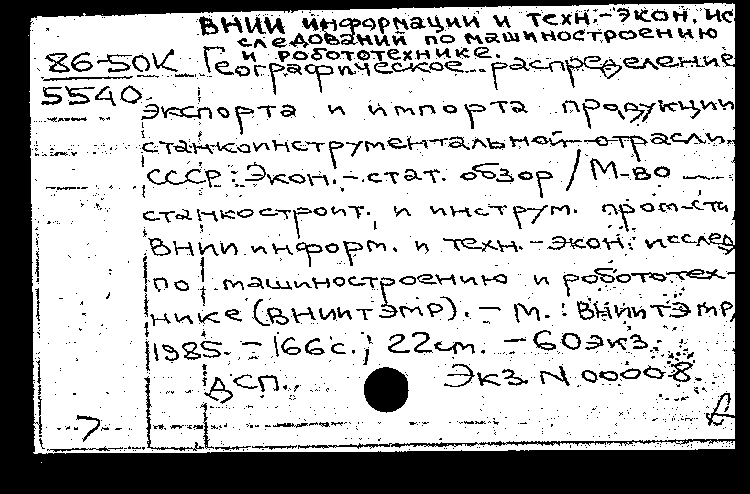 ВНИИ информации и техн.-экон. ис
следований по машиностроению
и робототехнике.
86-50К
5540
Географическое распределение
экспорта и импорта продукции
станкоинструментальной отрасли
СССР: Экон.-стат. обзор / М-во
станкостроит. и инструм. пром-сти,
ВНИИ информ. и техн.-экон. исслед
по машиностроению и робототех-
нике (ВНИИТЭМР). - М. : ВНИИТЭМР,
1985. - 166с.; 22см. - 60экз.
ДСП. Экз. N 00008.